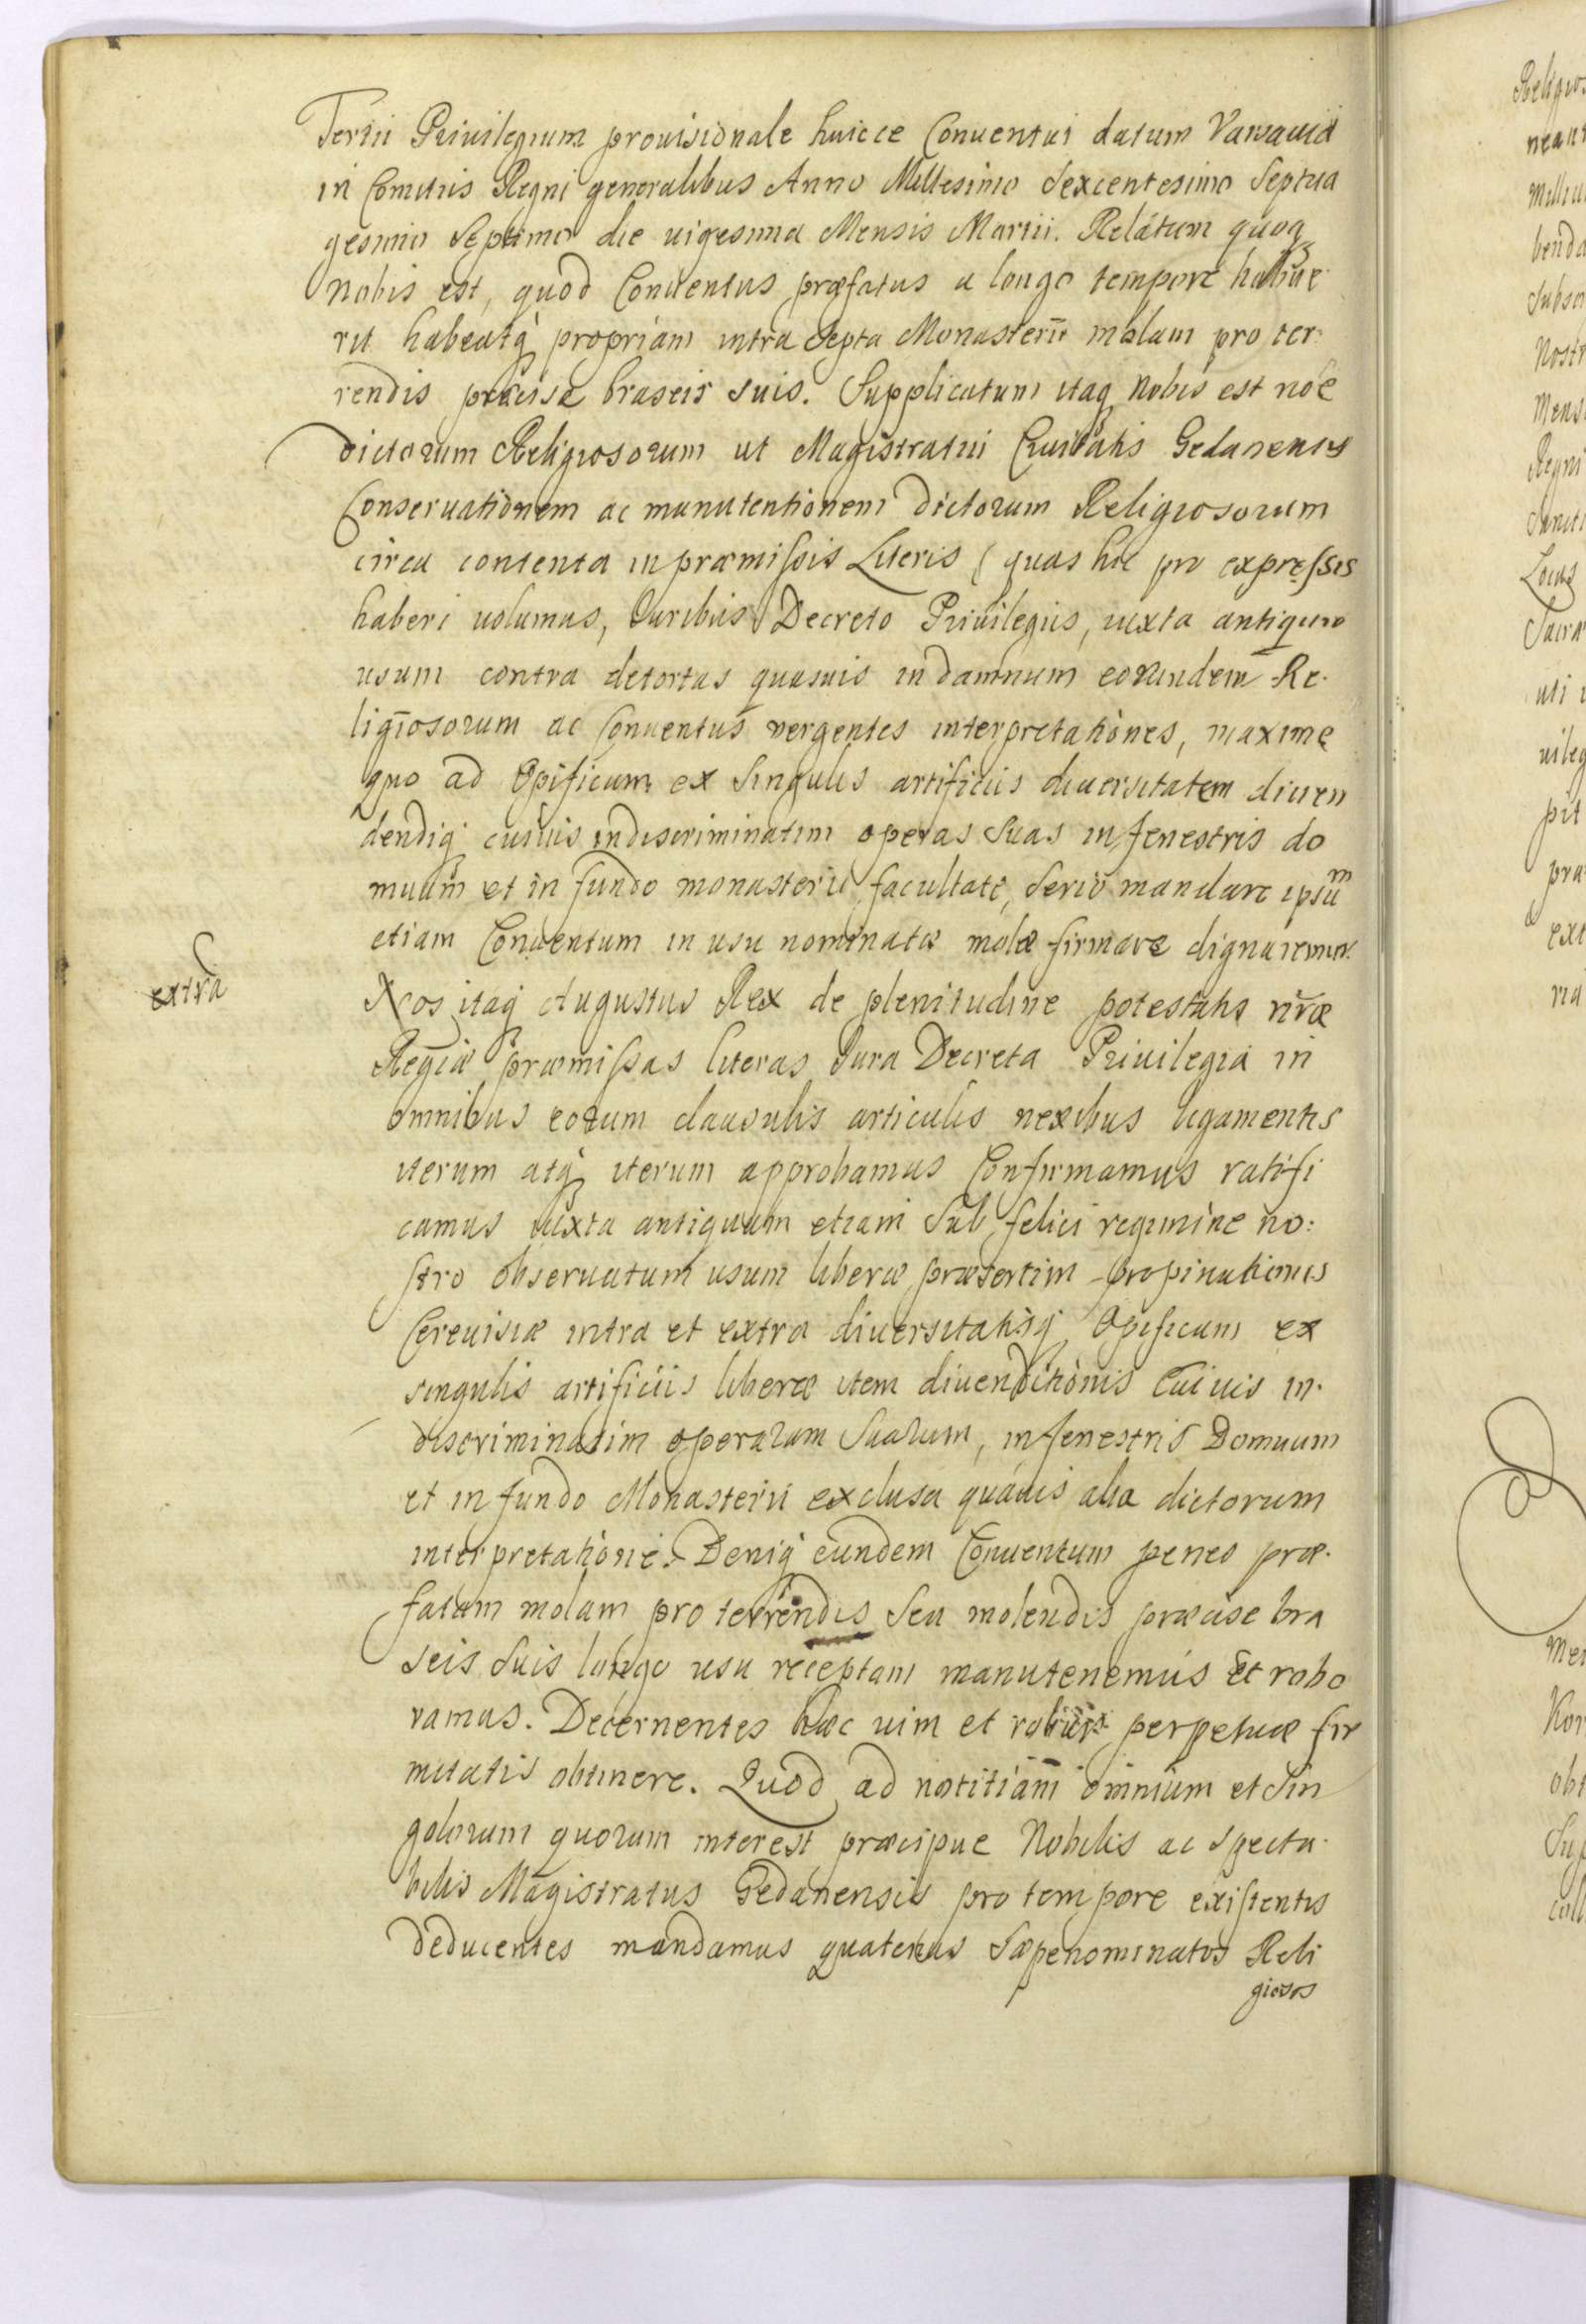 Tertii Priuilegium prouisionale huicce Conuentui datum Varsauiæ
in Comitiis Regni generalibus Anno Millesimo Sexcentesimo Septua
gesimo Septimo die uigesima Mensis Martii. Relátum quoq
Nobis est, quod Conuentus præfatus a longo tempore habue
rit habeatq propriam intra septa Monasterii molam pro ter:
rendis præcise braseis suis. Supplicatum itaq Nobis est nõe
dictorum Religiosorum ut Magistratui Ciuitatis Gedanensis
Conseruationem ac manutentionem dictorum Religiosorum
circa contenta in præmissis Literis (quas hic pro expressis
haberi uolumus, Iuribus Decreto Priuilegiis, iuxta antiquum
usum contra detortas quasuis in damnum eorundem Re-
ligiosorum ac Conuentus vergentes interpretationes, maxime
quo ad Opificum ex Singulis artificiis diuersitatem diuen
dendiq cuiuis indiscriminatim operas Suas in fenestris do
muum et in fundo monasterii facultate, Serio mandare ipsum
etiam Conuentum in usu nominatæ molæ firmare dignaremur.
extra
Nos itaq Augustus Rex de plenitudine potestatis nr̃æ
Regiæ præmissas literas Iura Decreta Priuilegia in
omnibus eorum clausulis articulis nexibus ligamentis
iterum atq iterum approbamus Confirmamus ratifi
camus iuxta antiquum etiam Sub felici regimine no:
stro obseruatum usum liberæ præsertim propinationis
Cereuisiæ intra et extra diuersitatisq Opificum ex
singulis artificiis liberæ item diuenditionis Cuiuis in-
discriminatim operarum Suarum, in fenestris Domuum
et in fundo Monasterii exclusa quáuis alia dictorum
interpretatione. Deniq eundem Conuentum penes præ-
fatam molam pro terrendis Seu molendis præcise bra
seis Suis longo usu receptam manutenemus Et robo
ramus. Decernentes hæc uim et robur perpetuæ fir
mitatis obtinere. Quod ad notitiam omnium et Sin
golorum quorum interest præcipue Nobilis ac Specta-
bilis Magistratus Gedanensis pro tempore existentis
deducentes mandamus quatenus Sæpenominatos Reli
giosos